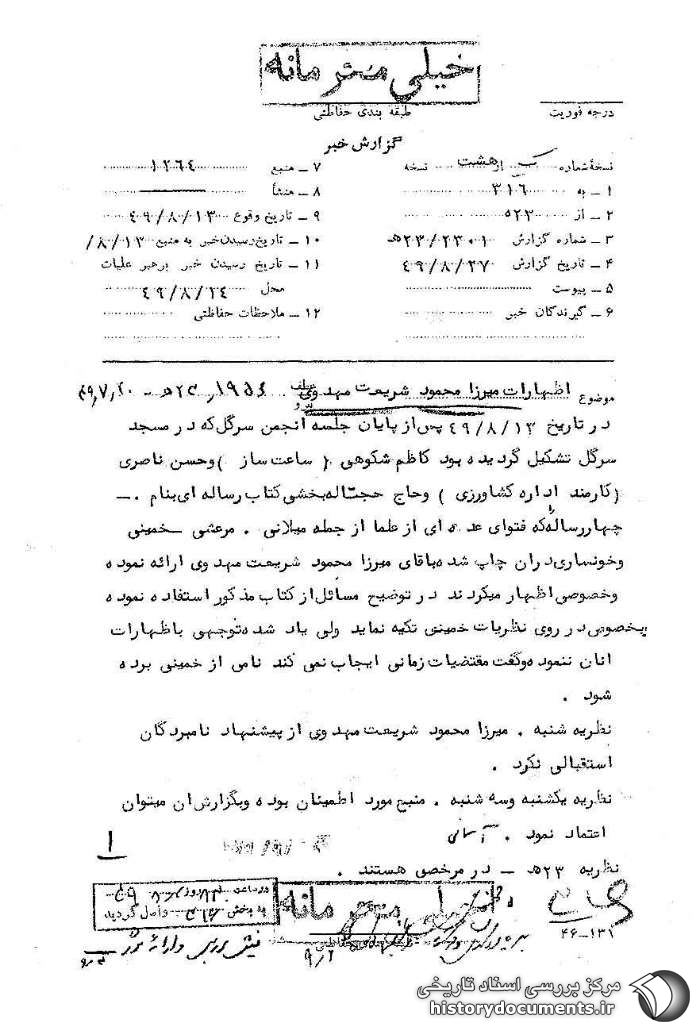 خیلی محرمانه
درجه فوریت
طبقه بندی حفاظتی
گزارش خبر
نسخهٔ شماره از هشت نسخه
۱ ـ به ۳۱۶
۲ ـ از ۵۲۳
۳ ـ شماره گزارش ۲۳/۲۳۰۱ﻫ
۴ ـ تاریخ گزارش ۴۹/۸/۲۷
۵ ـ پیوست
۶ ـ گیرندگان خبر
۷ ـ منبع ۱۲۶۴
۸ ـ منشأ
۹ ـ تاریخ وقوع ۴۹/۸/۱۳
۱۰ ـ تاریخ رسیدن خبر به منبع ۸/۱۳/
۱۱ ـ تاریخ رسیدن خبر برهبر عملیات
محل ۴۹/۸/۲۴
۱۲ ـ ملاحظات حفاظتی
موضوع اظهارات میرزا محمود شریعت مهدوی
در تاریخ ۴۹/۸/۱۳ پس از پایان جلسه انجمن سرگل که در مسجد
سرگل تشکیل گردیده بود کاظم شکوهی ( ساعت ساز ) وحسن ناصری
(کارمند اداره کشاورزی ) وحاج حجت‌اله‌بخشی کتاب رساله ای بنام . ـ
چهار رساله‌که فتوای عده ای از علما از جمله میلانی . مرعشی ـ خمینی
وخونساری دران چاپ شده باقای میرزا محمود شریعت مهدوی ارائه نموده
وخصوصی اظهار میکردند در توضیح مسائل از کتاب مذکور استفاده نموده
بخصوص در روی نظریات خمینی تکیه نماید ولی یاد شده توجهی باظهارات
انان ننموده وگفت مقتضیات زمانی ایجاب نمی کند نامی از خمینی برده
شود .
نظریه شنبه . میرزا محمود شریعت مهدوی از پیشنهاد نامبردگان
استقبالی نکرد .
نظریه یکشنبه وسه شنبه . منبع مورد اطمینان بوده وبگزارش ان میتوان
اعتماد نمود . آسمانی
۱
نظریه ۲۳ﻫ ـ در مرخصی هستند .
به بخش ۳۱۶ واصل گردید
خیلی محرمانه
۴۶-۱۳۱
۹/۲
مرکز بررسی اسناد تاریخی
historydocuments.ir